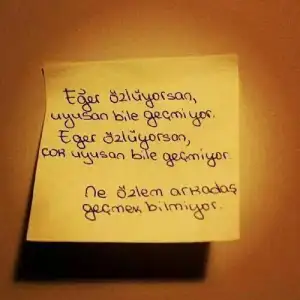 Eğer özlüyorsan,
uyusan bile geçmiyor.
Eğer özlüyorsan,
çok uyusan bile geçmiyor
Ne özlem arkadaş
geçmek bilmiyor.